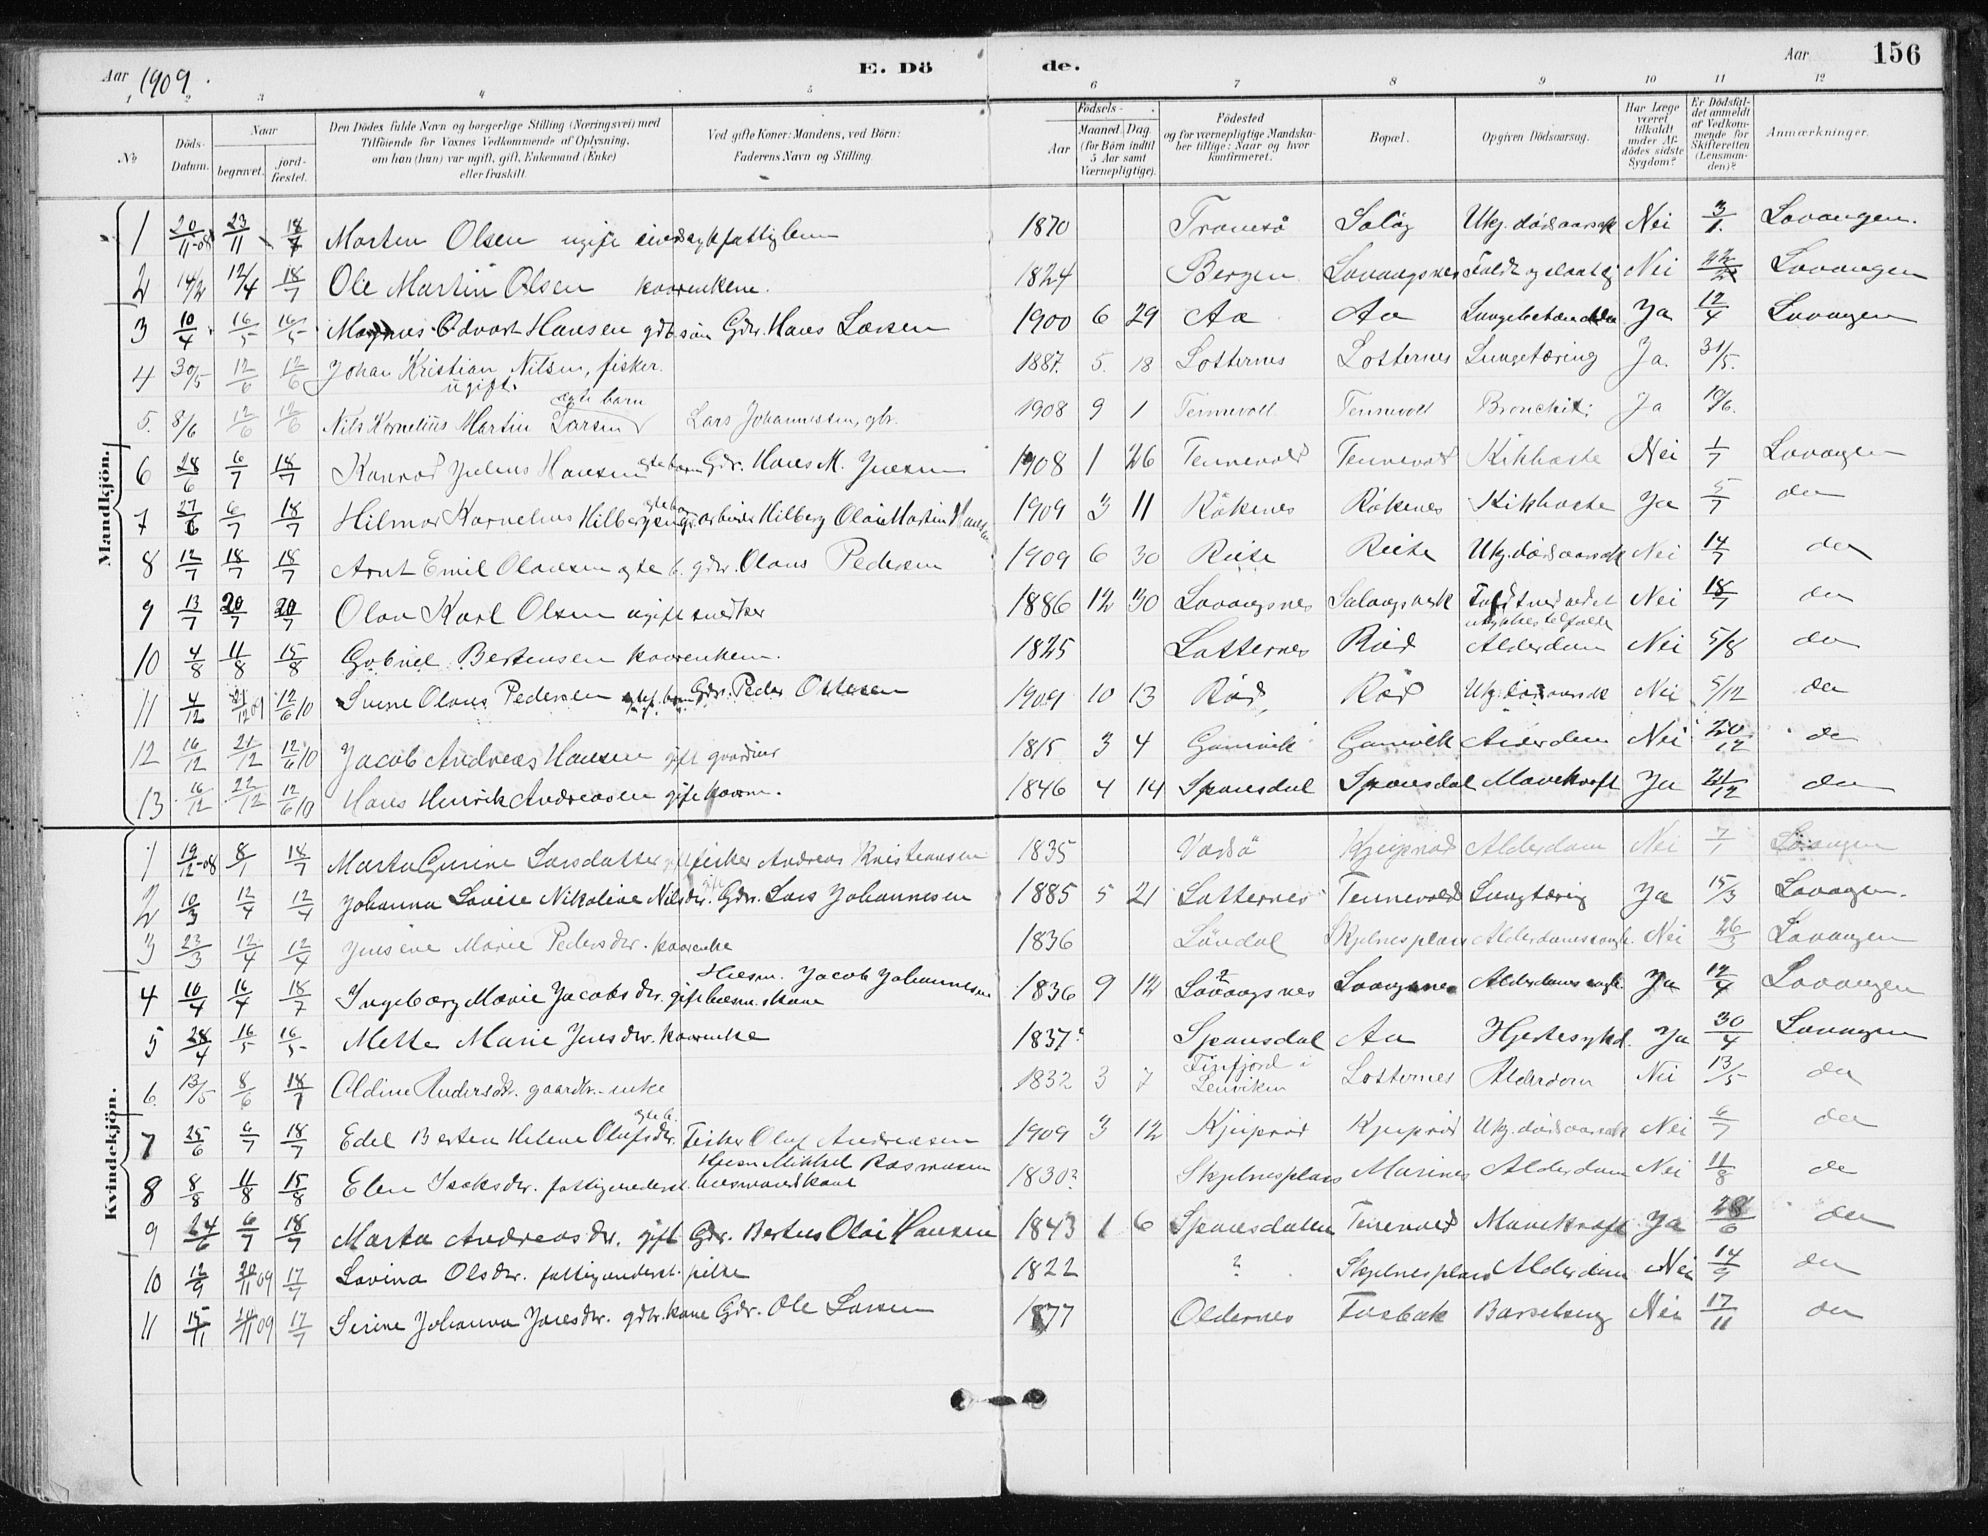 Aar 1909. E. Dö de. Aar 156
1 2 3 4 5 6 7 8 9 10 11 12
№ Döds-Datum. Naar begravet. jordfæstet. Den Dödes fulde Navn og borgerlige Stilling (Næringsvei) med Tilföiende for Voxnes Vedkommende af Oplysning, om han (hun) var ugift, gift, Enkemand (Enke) eller fraskilt. Ved gifte Koner: Mandens, ved Börn: Faderens Navn og Stilling. Födsels- Aar Maaned. Dag. (for Börn indtil 5 Aar samt Værnepligtige). Födested og for værnepligtige Mandskaber tillige: Naar og hvor konfirmeret. Bopæl. Opgiven Dödsaarsag. Har Læge været tilkaldt under Afdödes sidste Sygdom? Er Dödsfaldet anmeldt af Vedkommende for Skifteretten (Lensmanden)? Anmærkninger.
Mandkjön.
1 20/11-08 23/11 18/7 Morten Olsen ugift sindssyk fattiglem 1870 Tromsö Salög Ukj. dödsaarsak Nei 3/1. Lavangen.
2 14/2 12/4 18/7 Ole Martin Olsen kaarenkem. 1824 Bergen Lavangsnes Faldt og slo sig Nei 22/2 Lavangen
3 10/4 16/5 16/5 Magnus Edvart Hansen gdb. sön Gdr. Hans Larsen 1900 6 29 Aa Aa Lungebetændelse Ja 12/4 Lavangen
4 30/5 12/6 12/6 Johan Kristian Nilsen, fisker. ugift. 1887. 5. 18 Lotternes Lotternes Lungetæring Ja. 31/5.
5. 8/6 12/6 12/6 Nils Kornelius Martin Larsen ægte barn Lars Johannessen, gbr. 1908 9 1 Tennevoll Tennevoll Bronchit: Ja 10/6.
6 28/6 6/7 18/7 Konrad Julius Hansen ægte barn Gdr. Hans M. Jensen 1908 1 26 Tennevold Tennevold Kikhoste Nei 1/7 Lavangen
7 27/6 6/7 18/7 Hilmar Kornelius Hilbergsen ægte barn Gr. arbeider Hilberg Olai Martin Hansen 1909 3 11 Rökenes Rökenes Kikhoste Ja 5/7 do
8 12/7 18/7 18/7 Arnt Emil Olausen ægte b. gdr. Olaus Pedersen 1909 6 30 Ukj. dödsaarsak Nei 14/7 do
9 13/7 20/7 20/7 Olav Karl Olsen ugift snedker 1886 12 30 Lavangsnes Salangsverk Faldt ned ved et ulykkestilfælde Nei 18/7 do
10 4/8 11/8 15/8 Gabriel Bertensen kaarenkem. 1825 Lotternes Röd Alderdom Nei 5/8 do
11 4/12 21/12 09 12/6 10 Svene Olaus Pedersen ægtef. barn Gdr. Peder Ottesen 1909 10 13 Röd, Röd Ukj. dödsaarsak Nei 5/12 do
12 16/12 21/12 12/6 10 Jacob Andreas Hansen gift gaardmr 1815 3 4 Gamvik Gamvik Alderdom Nei 20/12 do
13 16/12 22/12 12/6 10 Hans Henrik Andreasen gift kaarm. 1846 4 14 Spansdal Spansdal Mavekræft Ja 21/12 do
Kvindekjön.
1 19/12-08 8/1 18/7 Marta Gurine Larsdatter gift fisker Andreas Kristiansen 1835 Vadsö Kjeiprod Alderdom Nei 7/1 Lavangen
2 10/3 12/4 12/4 Johanna Lovise Nikoline Nilsdr. gift Gdr. Lars Johannesen 1885 5 21 Lotternes Tennevold Lungtæring Ja 15/3 Lavangen.
3 23/3 12/4 12/4 Jensine Marie Pedersdr. kaarenke 1836 Löndal Skjelnesplass Alderdomssvagh. Nei 26/3 Lavangen
4 10/4 16/4 18/7 Ingeborg Marie Jacobsdr. gift husm. skone Husm. Jacob Johannessen 1836 9 12 Lavangsnes? Lavangsnes Alderdomssvagh. Ja 12/4 Lavangen
5 28/4 16/5 16/5 Mette Marie Jensdr. kaarenke 1837? Spansdal Aa Hjertesykd. Ja 30/4 Lavangen
6. 13/5 8/6 18/7 Oldine Andersdr. gaardbr.-enke 1832 3 7 Finfjord i Lenviken Lotternes Alderdom Nei 13/5 do
7 25/6 6/7 18/7 Edel Berten Helene Olufsdr. ægte b. Fisker Oluf Andreasen 1909 3 12 Kjeiprod Kjeiprod Ukj. dödsaarsak Nei 6/7 do
8 8/8 11/8 15/8 Elen Isaksdr. fattigunderst. husmandskone Husm Mikkel Rasmussen 1830? Skjelnesplass Marines Alderdom Nei 11/8 do
9 24/6 6/7 18/7 Marta Andreasdr. gift Gdr. Bertus Olai Hansen 1843 1 6 Spansdalen Tennevold Mavekræft Ja 28/6 do
10 12/9 20/11 09 17/7 Lovina Olsdr. fattigunderst. pike 1822 ? Skjelnesplass Alderdom Nei 14/9 do
11 15/11 20/11 09 17/7 Serine Johanna Jonesdr. gdbr. kone Gdr. Ole Larsen 1877 Oldernes Fosbak Barselseng Nei 17/11 do